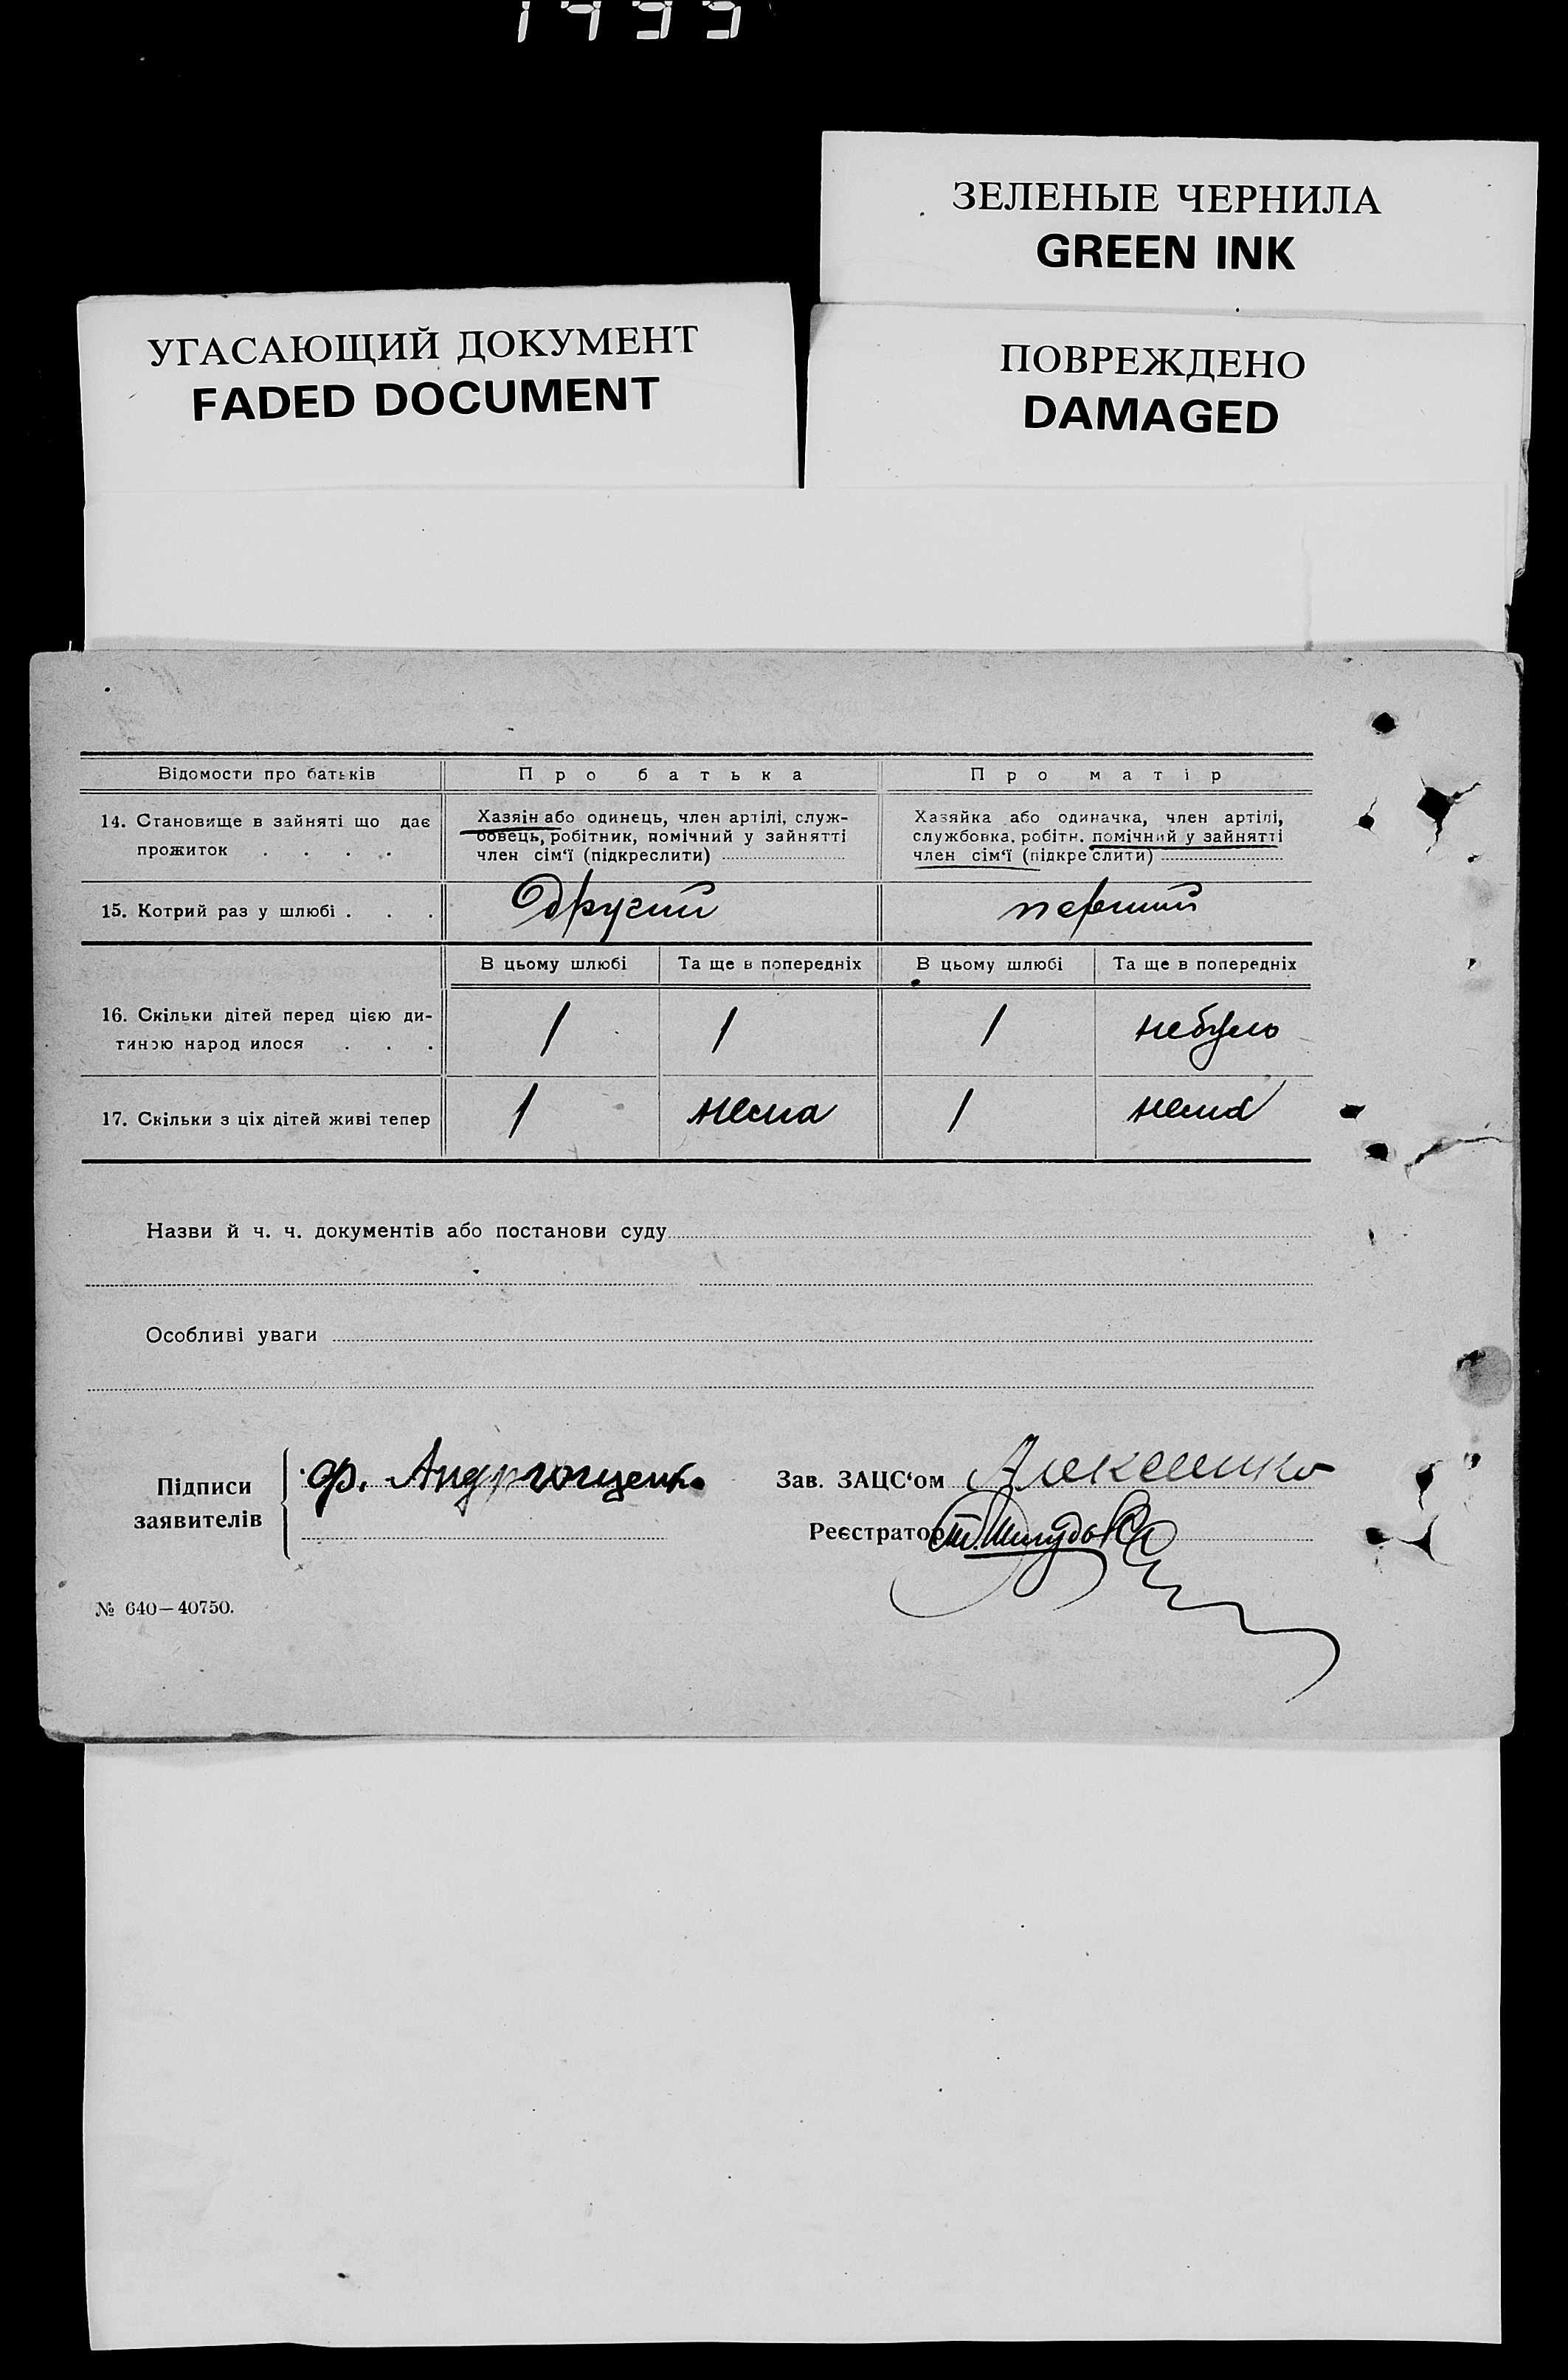 ЗЕЛЕНЫЕ ЧЕРНИЛА
GREEN INK
УГАСАЮЩИЙ ДОКУМЕНТ
FADED DOCUMENT
ПОВРЕЖДЕНО
DAMAGED
Відомости про батьків
Про батька
Про матір
14. Становище в зайняті що дає
прожиток . . . .
Хазяін або одинець, член артілі, служ-
бовець, робітник, помічний у зайнятті
член сім'ї (підкреслити)
Хазяйка або одиначка, член артілі,
службовка, робітн. помічний у зайнятті
член сім'ї (підкреслити)
15. Котрий раз у шлюбі . . .
Другий
перший
В цьому шлюбі
Та ще в попередніх
В цьому шлюбі
Та ще в попередніх
16. Скільки дітей перед цією ди-
тиною народилося . . .
1
1
1
небуло
17. Скільки з ціх дітей живі тепер
1
нема
1
нема
Назви й ч. ч. документів або постанови суду
Особливі уваги
Підписи
заявителів
ф. Андрющенко
Зав. ЗАЦС'ом
Алексенко
Реєстратор
№ 640—40750.